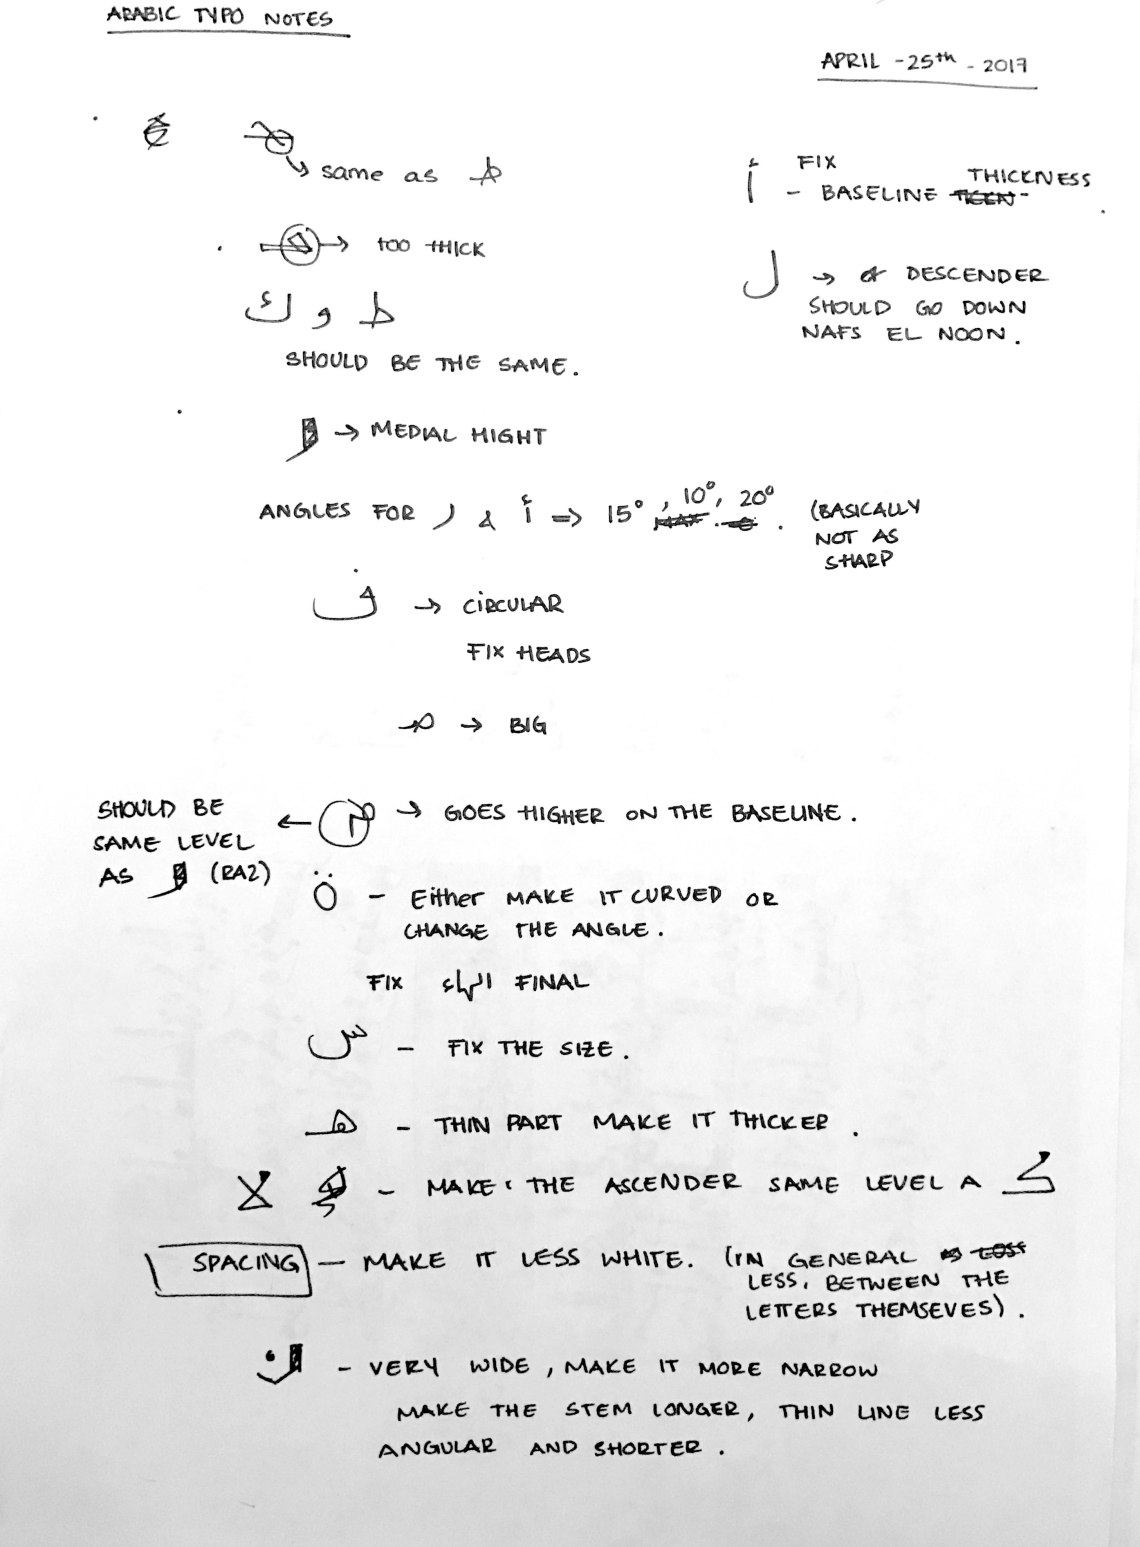 ARABIC TYPO NOTES
APRIL - 25th - 2017
same as ط
أ FIX
- BASELINE THICKNESS
→ TOO THICK
ل → DESCENDER
SHOULD GO DOWN
NAFS EL NOON.
ك و ط
SHOULD BE THE SAME.
→ MEDIAL HIGHT
ANGLES FOR ر & أ => 15°, 10°, 20°. (BASICALLY
NOT AS
SHARP
ف → CIRCULAR
FIX HEADS
→ BIG
SHOULD BE
SAME LEVEL
AS ر (RA2)
م → GOES HIGHER ON THE BASELINE.
ة - Either MAKE IT CURVED OR
CHANGE THE ANGLE.
FIX الهاء FINAL
س - FIX THE SIZE.
هـ - THIN PART MAKE IT THICKER.
لا - MAKE THE ASCENDER SAME LEVEL A كـ
SPACING - MAKE IT LESS WHITE. (IN GENERAL
LESS, BETWEEN THE
LETTERS THEMSEVES).
ن - VERY WIDE, MAKE IT MORE NARROW
MAKE THE STEM LONGER, THIN LINE LESS
ANGULAR AND SHORTER.